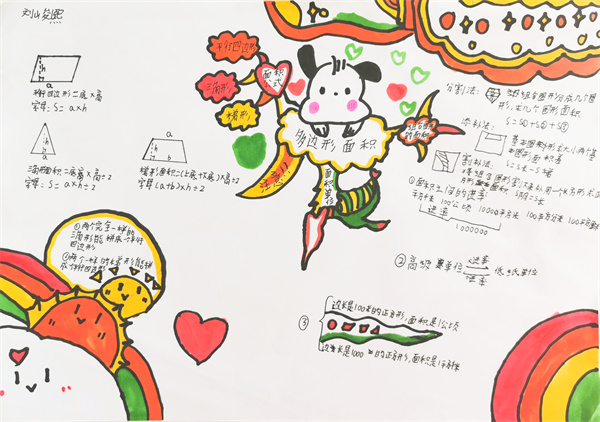 刘
平行四边形
三角形
梯形
面积公式
多边形面积
组合图形的面积
注意!
面积单位
a
h
b
平行四边形=底×高
字母:S=a×h
三角形面积=底×高÷2
字母:S=a×h÷2
a
h
b
梯形面积=(上底+下底)×高÷2
字母(a+b)×h÷2
分割法:
把组合图形分成几个图形,求几个图形面积
添补法:
割补法:
①面积单位间的进率
平方千米 100 公顷 10000 平方米 100 平方分米 100
进率
1000000
②高级单位
进率
低级单位
进率
③
边长是100米的正方形,面积是1公顷
边长是1000米的正方形,面积是1平方千米
①两个完全一样的
三角形能拼成一个平行
四边形
②两个一样的梯形能拼
成个平行四边形